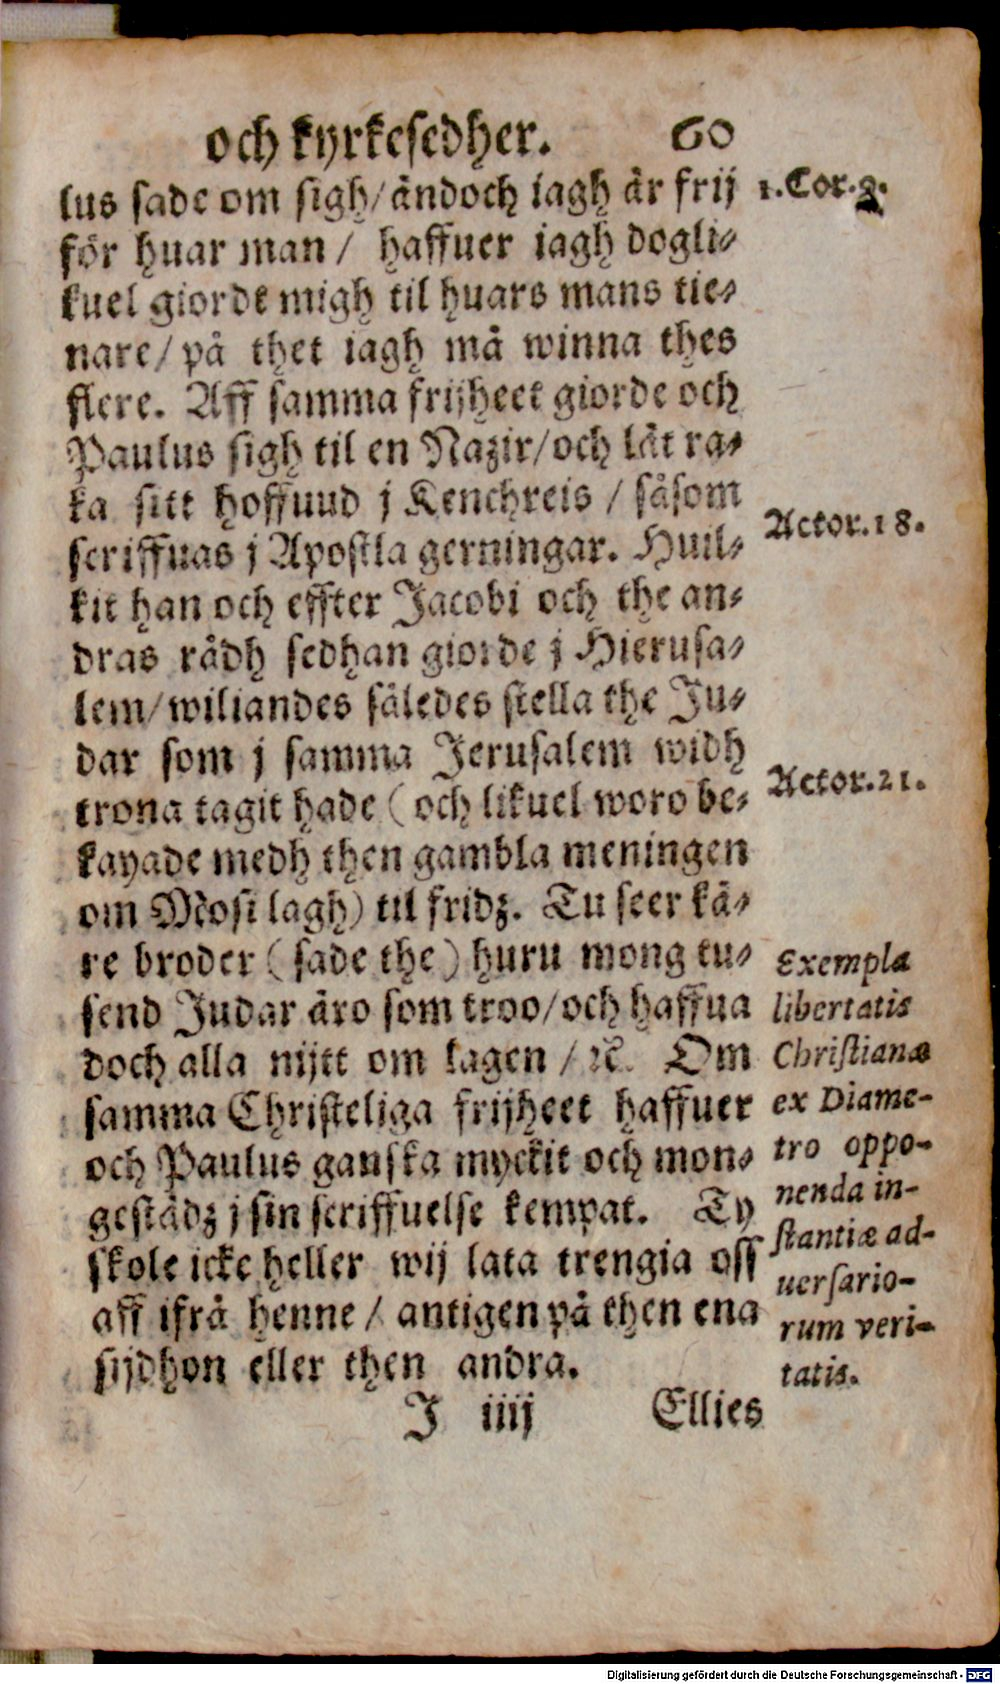 och kyrkesedher. 60
lus sade om sigh/ ändoch iagh är frij
för huar man / haffuer iagh dogli⸗
kuel giorde migh til huars mans tie⸗
nare/ på thet iagh må winna thes
flere. Aff samma frijheet giorde och
Paulus sigh til en Nazir/ och lät ra⸗
ka sitt hoffuud j Kenchreis / såsom
scriffuas j Apostla gerningar. Huil⸗
kit han och effter Jacobi och the an⸗
dras rådh sedhan giorde j Hierusa⸗
lem/ wiliandes således stella the Ju⸗
dar som j samma Jerusalem widh
trona tagit hade (och likuel woro be⸗
kayade medh then gambla meningen
om Mosi lagh) til fridz. Tu seer kä⸗
re broder (sade the) huru mong tu⸗
send Judar äro som troo/ och haffua
doch alla nijtt om lagen / ꝛc. Om
samma Christeliga frijheet haffuer
och Paulus ganska myckit och mon⸗
gestädz j sin scriffuelse kempat. Ty
skole icke heller wij lata trengia oss
aff ifrå henne / antigen på then ena
sijdhon eller then andra.
J iiij Ellies
1. Cor. 9.
Actor. 18.
Actor. 21.
Exempla
libertatis
Christianæ
ex Diame-
tro oppo-
nenda in-
stantiæ ad-
uersario-
rum veri-
tatis.
Digitalisierung gefördert durch die Deutsche Forschungsgemeinschaft - DFG